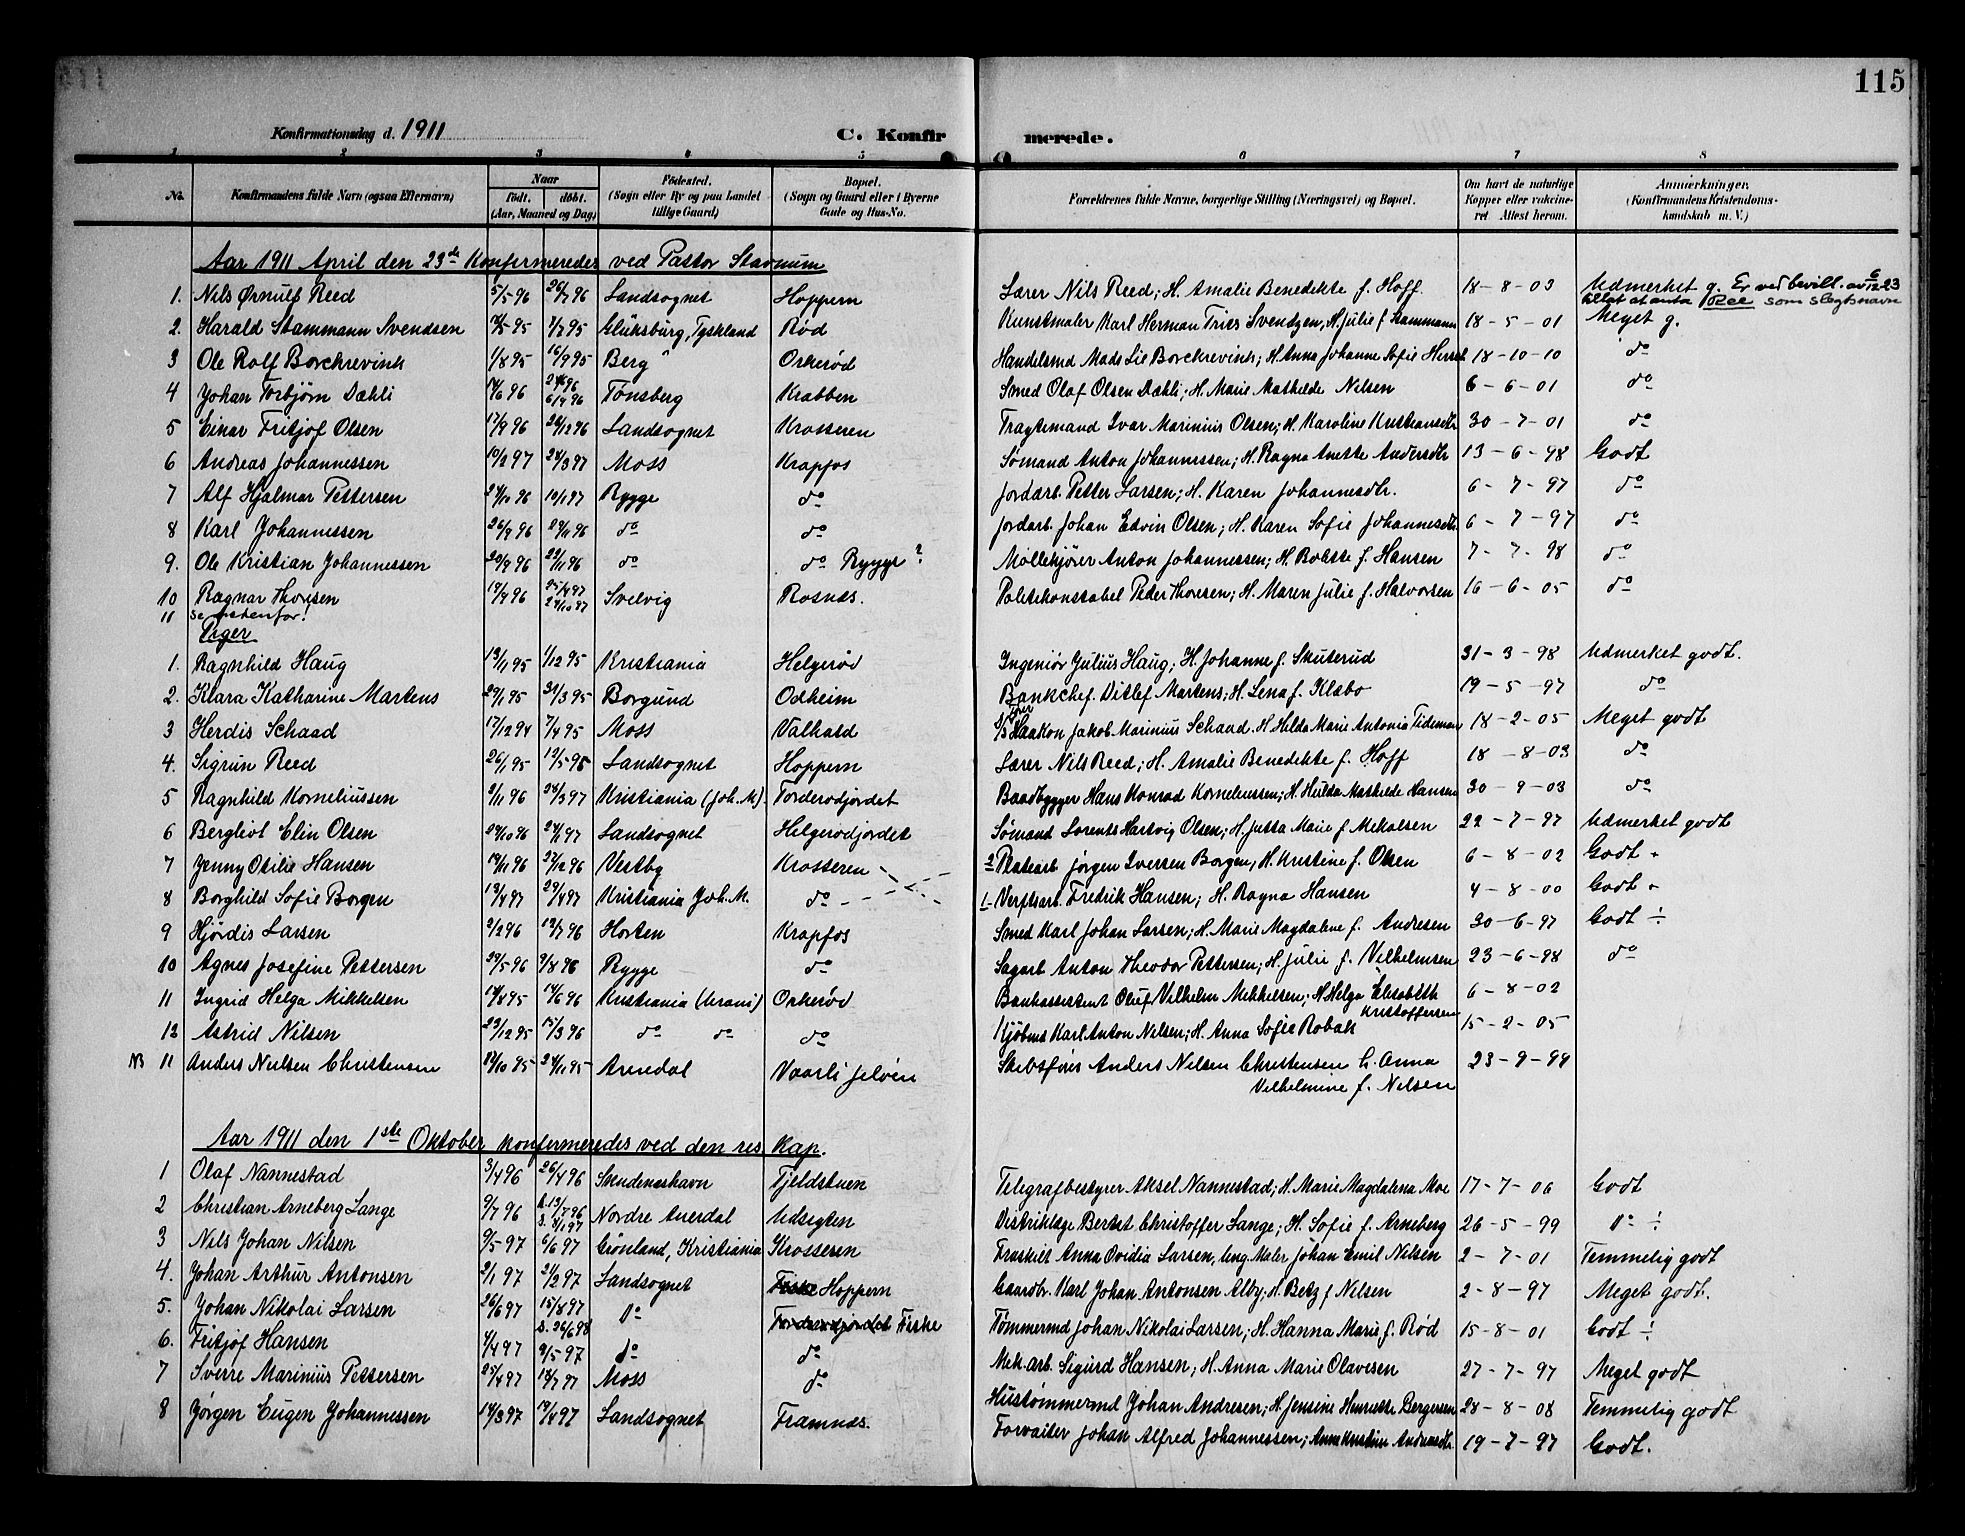 115
Konfirmationsdag d. 1911
C. Konfirmerede.
1 2 3 4 5 6 7 8
No. Konfirmandens fulde Navn (ogsaa Efternavn) Naar født. døbt. (Aar, Maaned og Dag) Fødested. (Sogn eller By og paa Landet tillige Gaard) Bopæl. (Sogn og Gaard eller i Byerne Gade og Hus-No. Forældrenes fulde Navne, borgerlige Stilling (Næringsvei) og Bopæl. Om havt de naturlige Kopper eller vakcineret Attest herom. Anmærkninger. (Konfirmandens Kristendomskundskab m. V.)
Aar 1911 April den 23de Konfirmeredes ved Pastor Stavnum
1. Nils Ørnulf Reed 5/5 96 26/7 96 Landsognet Hoppern Lærer Nils Reed; H. Amalie Benedikte f. Hoff 18-8-03 Udmerket g. Er ved bevill. av 6/12 23 tillat at anta som slegtsnavn
2. Harald Stammann Svendsen 7/7 95 Glüksburg, Tyskland Rød Kunstmaler Karl Herman Fries Svendsen, H. Julie f Stammann 18-5-01 Meget g.
3 Ole Rolf Borchrevink 1/8 95 16/9 95 Berg Orkerød Handelsmd Mads Lie Borckrevink; H. Anna Johanne Sofie 18-10-10 do
4 Johan Torbjørn Dæhli 14/6 96 Tønsberg Krabben Smed Olaf Olsen Dæhli; H. Marie Mathilde Nilsen 6-6-01 do
5 Einar Fritjof Olsen 17/9 96 26/12 96 Landsognet Krosseren Fragtemand Ivar Marinius Olsen; H. Karoline Kristiansdtr 30-7-01 do
6 Andreas Johannessen 10/2 97 24/3 97 Moss Krapfos Sømand Anton Johannessen; H. Ragna Anette Andersdtr 13-6-98 Godt
7 Alf Hjalmar Pettersen 24/10 96 10/1 97 Rygge do Jordarb. Petter Larsen; H. Karen Johannesdtr. 6-7-97 do
8 Karl Johannessen 26/9 96 29/11 96 do do Jordarb. Johan Edvin Olsen; H. Karen Sofie Johannesdtr 6-7-97 do
9. Ole Kristian Johannessen 20/9 96 22/11 96 do do Rygge? Møllekjører Anton Johannessen; H. Bolette f. Hansen 7-7-98 do
10 Ragnar Thoresen 19/9 96 Svelvig Rosnæs. Politikonstabel Peder Thoresen; H. Maren Julie f. Halvorsen 16-6-05 do
11 se nedenfor!
Piger
1. Ragnhild Haug 13/11 95 1/12 95 Kristiania Helgerød Ingeniør Julius Haug; H. Johanne f. Skuterud 31-3-98 Udmerket godt.
2. Klara Katharine Martens 29/1 95 31/3 95 Borgund Odheim Bankchef. Ditlef Martens; H. Lena f. Klæbo 19-5-97 do
3 Herdis Schaad 17/12 94 7/4 95 Moss Valhald Haakon Jakob Marinius Schaad H Hilda Marie Antonia Tideman 18-2-05 Meget godt
4. Sigrun Reed 26/1 95 12/5 95 Landsognet Hoppern Lærer Nils Reed; H. Amalie Benedikte f. Hoff 18-8-03 do
5 Ragnhild Korneliussen 2/11 96 28/3 97 Kristiania (Joh. M.) Torderødjordet Baadbygger Hans Konrad Korneliussen; H. Hulda Mathilde Hansen 30-9-03 do
6 Bergliot Elin Olsen 29/10 96 24/1 97 Landsognet Helgerødjordet Sømand Lorents Hartvig Olsen; H. Jutta Marie f. Mikalsen 22-7-97 Udmerket godt
7 Jenny Otilie Hansen 19/11 96 27/12 96 Vestby Krosseren 2 Platearb Jørgen Iversen Borgen; H. Kristine f. Olsen 6-8-02 Godt
8 Borghild Sofie Borgen 13/4 97 29/4 97 Kristiania Joh. M. do 1 Verftsarb. Fredrik Hansen; H. Ragna Hansen 4-8-00 Godt
9 Hjørdis Larsen 2/2 96 12/7 96 Horten Krapfos Smed Karl Johan Larsen; H. Marie Magdalene f. Andresen 30-6-97 Godt ÷
10 Agnes Josefine Pettersen 29/5 96 9/8 96 Rygge do Sagarb Anton Theodor Pettersen; H. Julie f. Vilhelmsen 23-6-98 do
11 Ingrid Helga Mikkelsen 14/6 96 Kristiania (Urani) Orkerød Bankassistent Oluf Vilhelm Mikkelsen; H Helga Elisabeth Kristoffersen 6-8-02
12 Astrid Nilsen 23/12 95 15/3 96 do do do Kjøbmd Karl Anton Nilsen; H. Anna Sofie Robak 15-2-05
NB 11 Anders Neilsen Christensen 24/11 95 Arendal Vaarli Jeløen Skibsfører Anders Nilsen Christensen h. Anna Vilhelmine f. Nilsen 23-9-99
Aar 1911 den 1ste Oktober konfirmeredes ved den res. Kap.
1 Olaf Nannestad 3/4 96 26/4 96 Skudeneshavn Fjeldstuen Telegrafbestyrer Aksel Nannestad; H. Marie Magdalena Moe 17-7-06 Godt
2 Christian Arneberg Lange 9/7 96 Nordre Aurdal Udsigten Distriktslæge Berket Christoffer Lange; H. Sofie f. Arneberg 26-5-99 Do ÷
3 Nils Johan Nilsen 9/5 97 6/6 97 Grønland, Kristiania Krosseren Fraskilt Anna Ovidia Larsen, ung. Maler Johan Emil Nilsen 2-7-01 Temmelig godt
4. Johan Arthur Antonsen 2/1 97 21/2 97 Landsognet Hoppern Gaardbr. Karl Johan Antonsen Alby; H. Betzy f Nilsen 2-8-97 Meget godt.
5. Johan Nikolai Larsen 26/6 97 15/8 97 Do Torderødjordet Fiske Tømmermd Johan Nikolai Larsen; H. Hanna Marie f. Rød 15-8-01 Godt ÷
6. Fritjof Hansen 4/4 97 9/5 97 do do Mek. arb. Sigurd Hansen; H. Anna Marie Olavesen 27-7-97 Meget godt
7 Sverre Marinius Pettersen 25/4 97 18/7 97 Moss do Hustømmermd Johan Andresen; H. Jensine Henriette Bergersen 28-8-08 Temmelig godt
8 Jørgen Eugen Johannessen 14/3 97 19/4 97 Landsognet Framnæs. Forvalter Johan Alfred Johannessen; Anne Kristine Andreasdtr. 19-7-97 Godt.